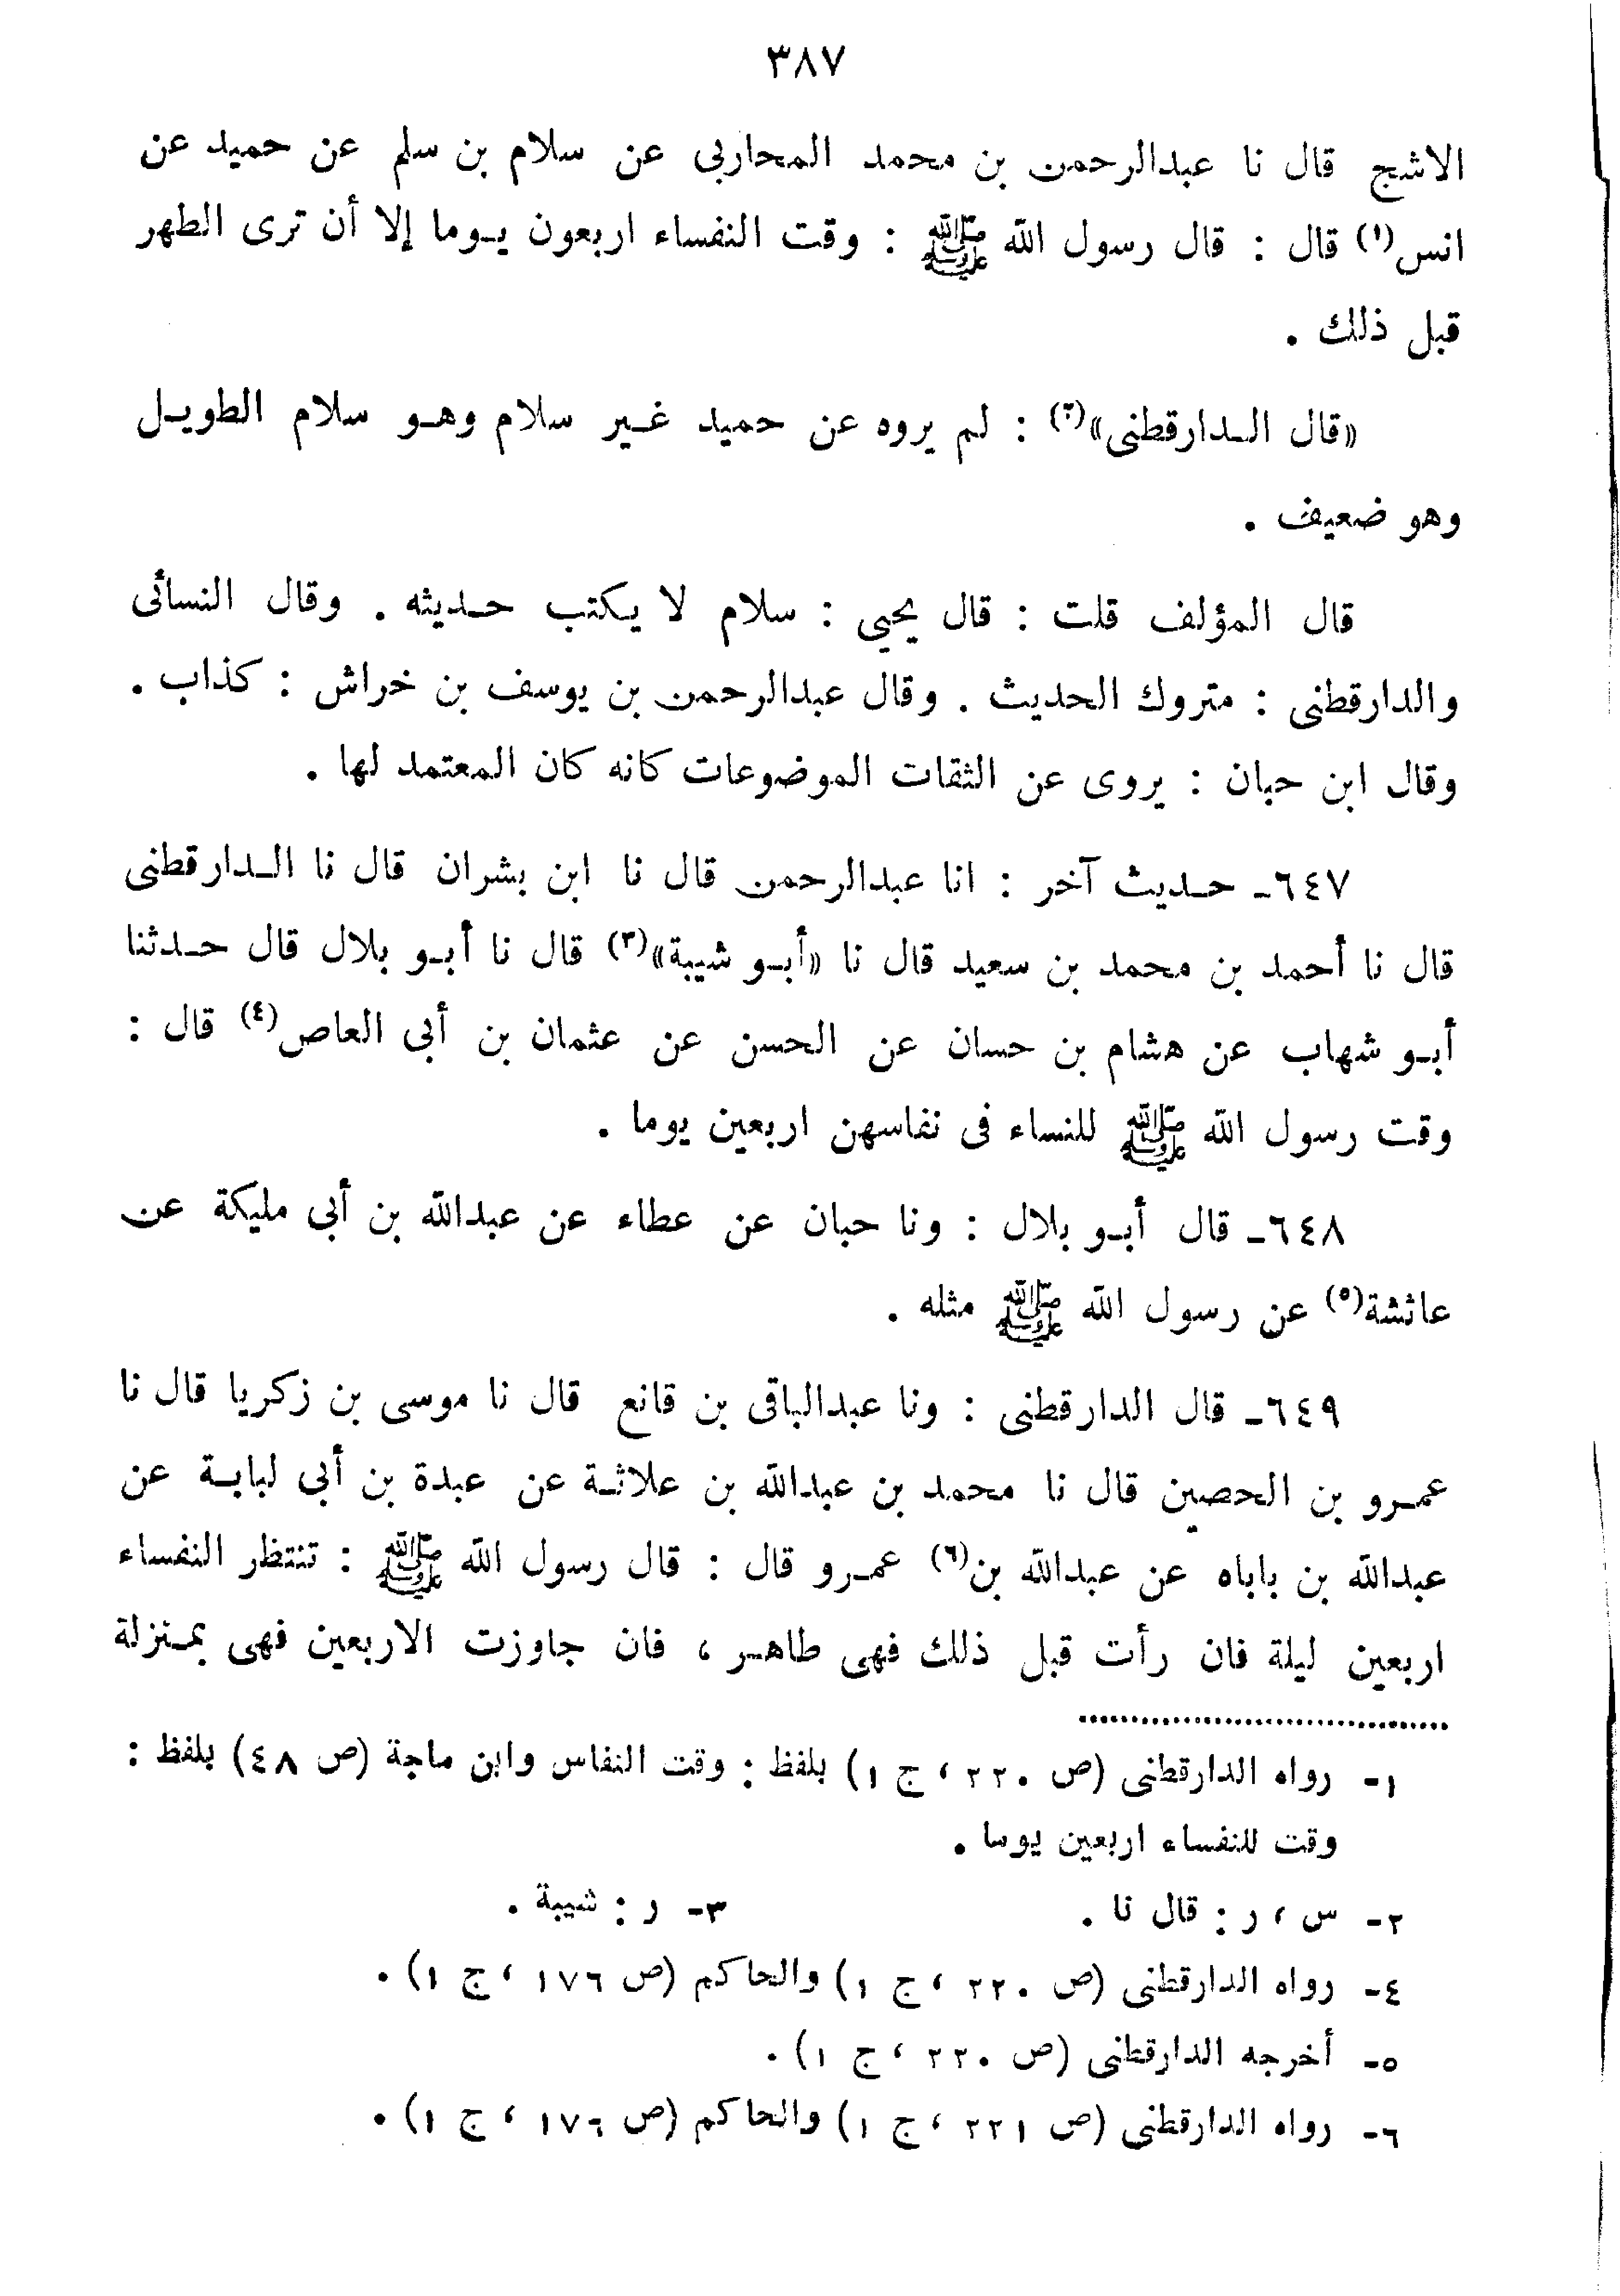 ٣٨٧
الاشج قال نا عبدالرحمن بن محمد المحاربى عن سلام بن سلم عن حميد عن
انس(١) قال : قال رسول الله ﷺ : وقت النفساء اربعون يـوما إلا أن ترى الطهر
قبل ذلك .
«قال الـدارقطنى»(٢) : لم يروه عن حميد غـير سلام وهـو سلام الطويـل
وهو ضعيف .
قال المؤلف قلت : قال يحيى : سلام لا يكتب حـديثه . وقال النسائى
والدارقطنى : متروك الحديث . وقال عبدالرحمن بن يوسف بن خراش : كذاب .
وقال ابن حبان : يروى عن الثقات الموضوعات كانه كان المعتمد لها .
٦٤٧ـ حـديث آخر : انا عبدالرحمن قال نا ابن بشران قال نا الـدارقطنى
قال نا أحمد بن محمد بن سعيد قال نا «أبـو شيبة»(٣) قال نا أبـو بلال قال حـدثنا
أبـو شهاب عن هشام بن حسان عن الحسن عن عثمان بن أبى العاص(٤) قال :
وقت رسول الله ﷺ للنساء فى نفاسهن اربعين يوما .
٦٤٨ـ قال أبـو بلال : ونا حبان عن عطاء عن عبدالله بن أبى مليكة عن
عائشة(٥) عن رسول الله ﷺ مثله .
٦٤٩ـ قال الدارقطنى : ونا عبدالباقى بن قانع قال نا موسى بن زكريا قال نا
عمـرو بن الحصين قال نا محمد بن عبدالله بن علاثـة عن عبدة بن أبى لبابـة عن
عبدالله بن باباه عن عبدالله بن(٦) عمـرو قال : قال رسول الله ﷺ : تنتظر النفساء
اربعين ليلة فان رأت قبل ذلك فهى طاهـر ، فان جاوزت الاربعين فهى بمـنزلة
١- رواه الدارقطنى (ص ٢٢٠ ، ج ١) بلفظ : وقت النفاس وابن ماجة (ص ٤٨) بلفظ :
وقت للنفساء اربعين يوما .
٢- س ، ر : قال نا . ٣- ر : شيبة .
٤- رواه الدارقطنى (ص ٢٢٠ ، ج ١) والحاكم (ص ١٧٦ ، ج ١) .
٥- أخرجه الدارقطنى (ص ٢٢٠ ، ج ١) .
٦- رواه الدارقطنى (ص ٢٢١ ، ج ١) والحاكم (ص ١٧٦ ، ج ١) .